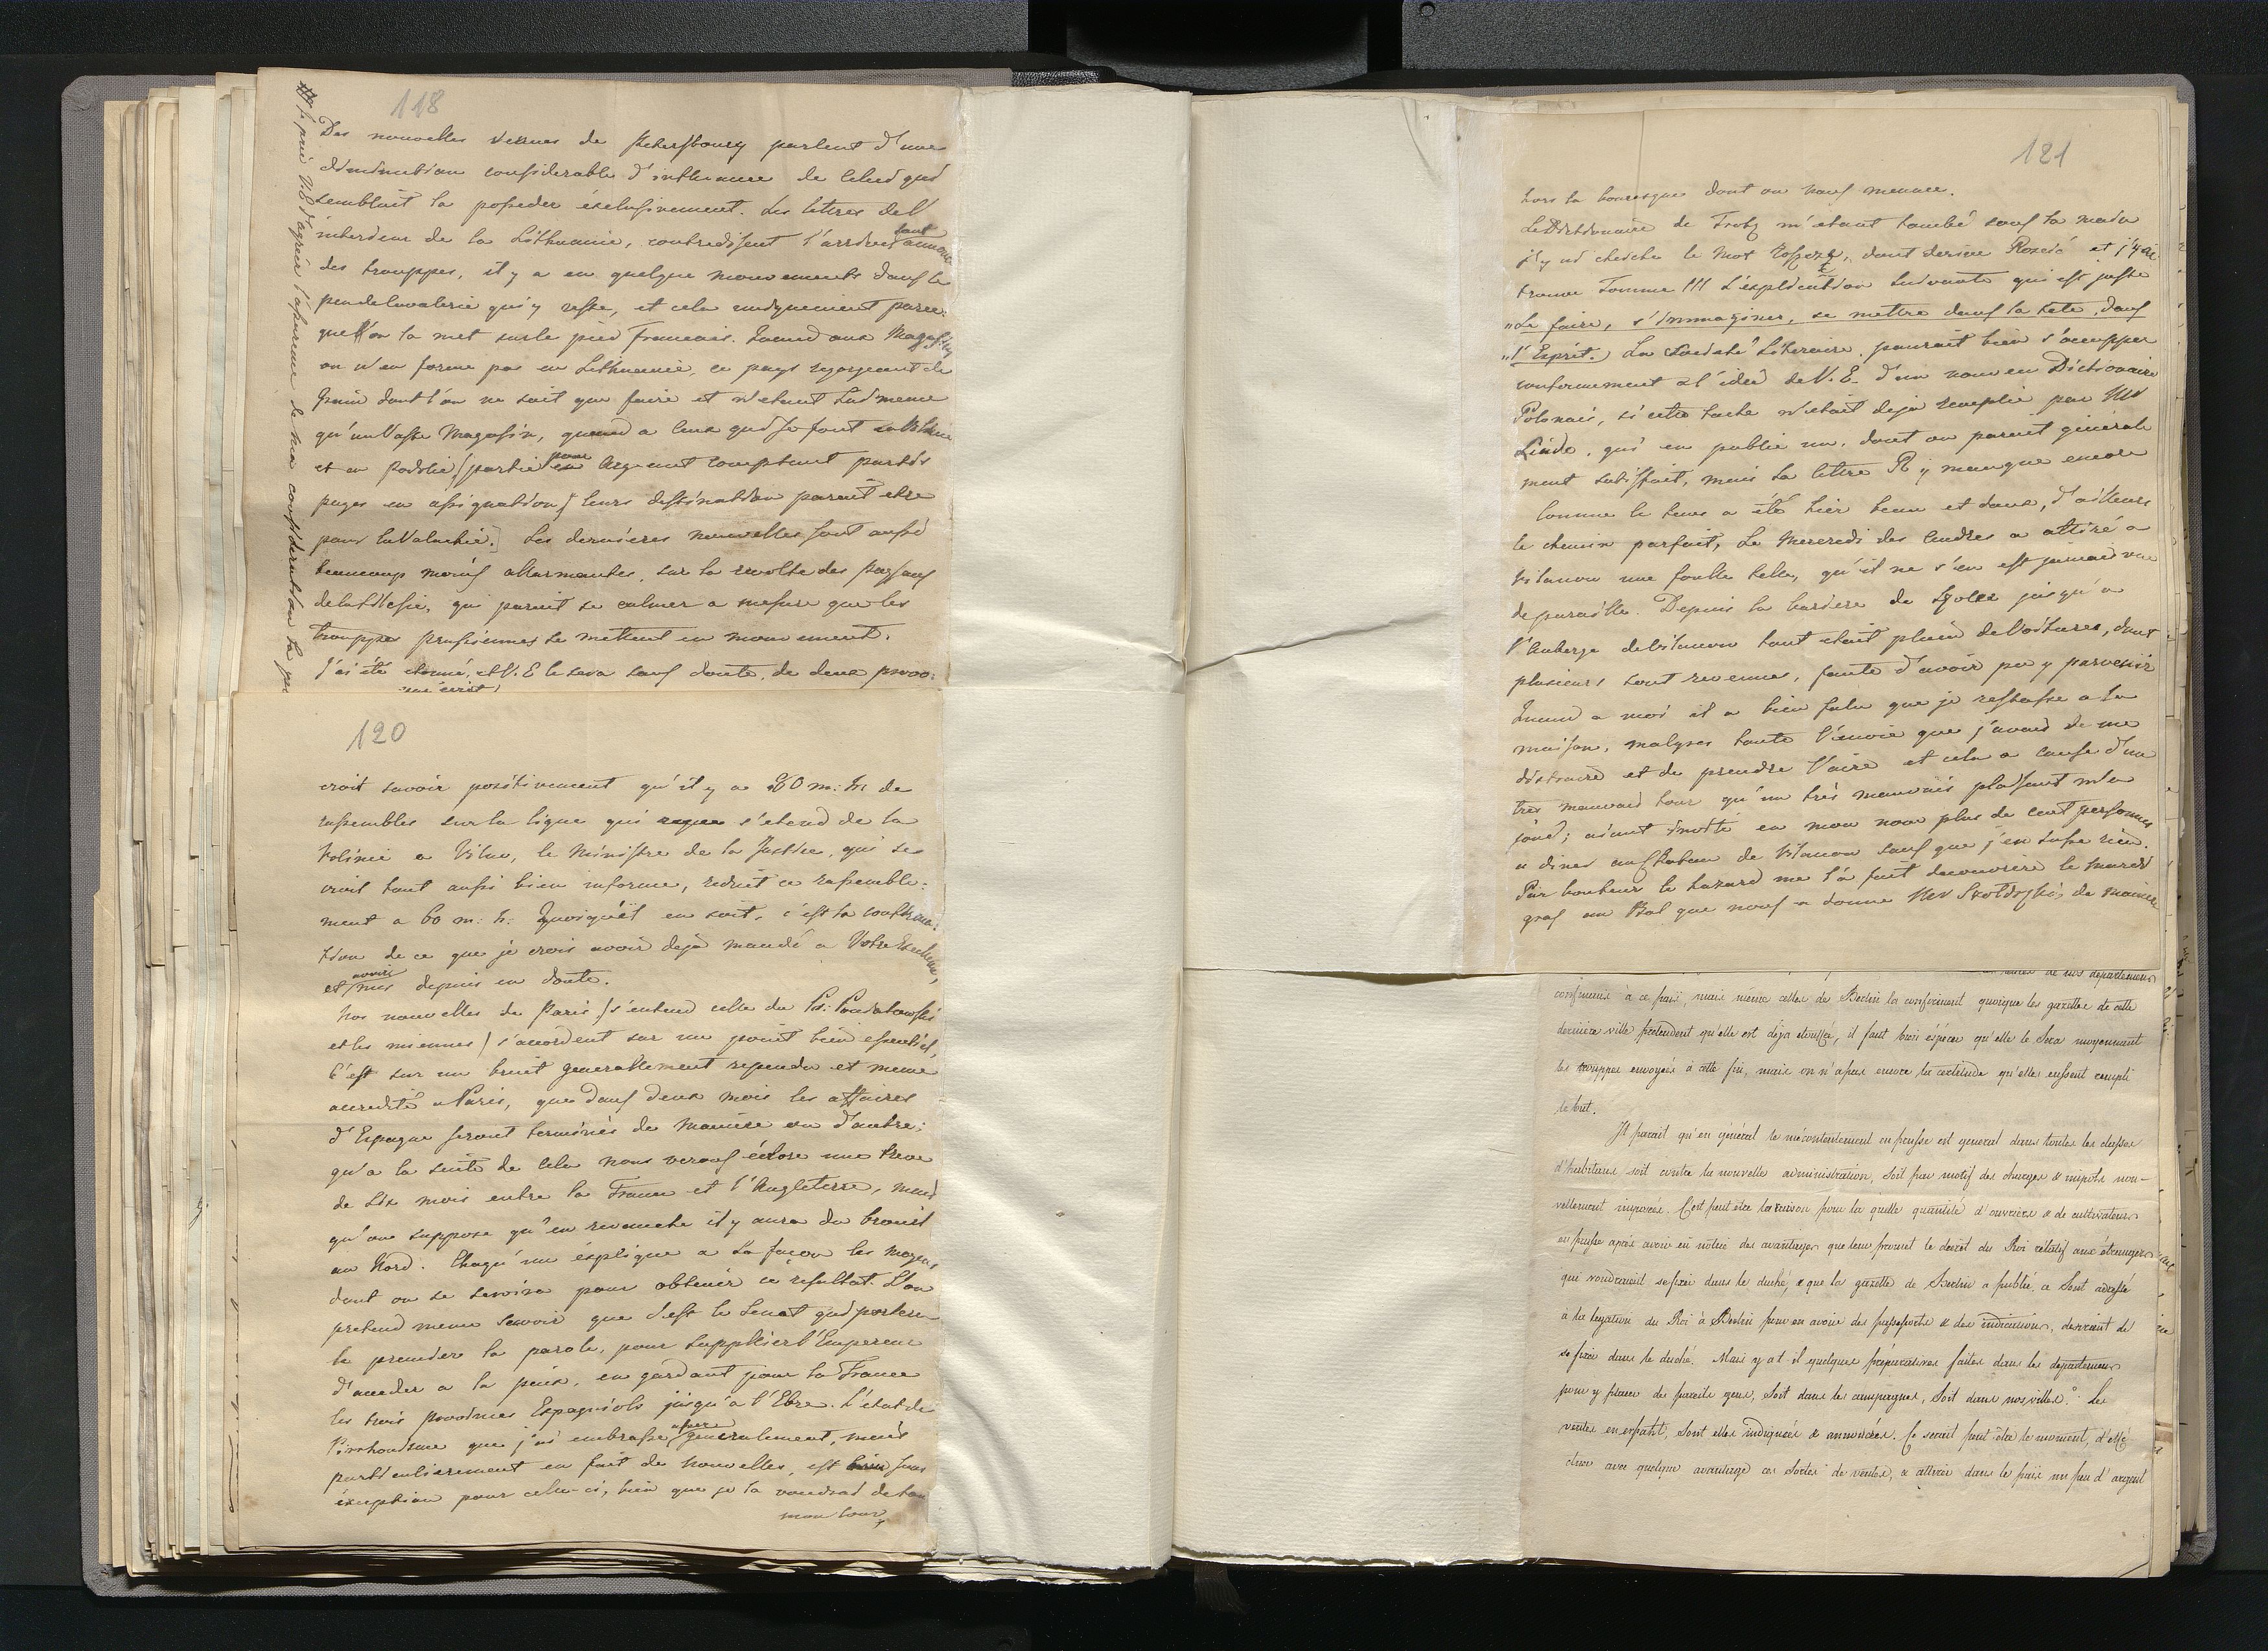 118
Des nouvelles venues de Petersbourg parlent d'une
diminution considerable d'influence de celui qui
semblait la posseder éxclusivement. Les lettres de l'
interieur de la Lithuanie, contredisent l'arrivée tant annoncé
des trouppes, il y a eu quelque mouvements dans le
peu de Cavalerie qui y reste, et cela uniquement parce-
que l'on la met sur le pied Francais. Quand aux Magasins
on n'en forme pas en Lithuanie, ce pays regorgeant de
Grain dont l'on ne sait que faire et n'etant lui meme
qu'un Vaste Magasin, quand a ceux qui se font en Volhinie
et en Podolie (partie pour argent comptant partie
payes en assignation) leurs destination parait etre
pour la Valachie.] Les dernières nouvelles sont aussi
beaucoup moins allarmantes, sur la revolte des paysans
de la Silesie, qui parait se calmer a mesure que les
trouppes prussiennes se mettent en mouvement.
J'ai été etonné, et V. E. le sera sans doute, de deux proo-
je prie V. E. d'agréer l'assurence de ma consideration la
120
croit savoir positivement qu'il y a 80 m: h: de
rassembles sur la ligne qui s'etend de la
Volinie a Vilna, le Ministre de la Justice, qui se
croit tout aussi bien informe, reduit ce rassemble-
ment a 60 m: h: Quoiqu'il en soit, c'est la confirma-
tion de ce que je crois avoir dejà mandé a Votre Excellence,
et avoir mis depuis en doute.
Nos nouvelles de Paris (s'entend celle du Pd: Poniatowski
et les miennes) s'accordent sur un point bien essentiel,
C'est sur un bruit generallement repandu et meme
accredité a Paris, que dans deux mois les affaires
d'Espagne seront terminés de maniere ou d'autre;
qu'a la suite de cela nous verons éclore une treve
de six mois entre la France et l'Angleterre, mais
qu'on suppose qu'en revanche il y aura du brouit
au Nord. Chaqu'un éxplique a sa façon les moyens
dont on se servira pour obtenir ce resultat. L'on
pretend meme scavoir que c'est le Senat qui portera
le premier la parole, pour supplier l'Empereur
d'acceder a la paix, en gardant pour la France
les trois provinces Espagnols jusqu'à l'Ebre. L'etat de
Pirrhonisme que j'ai embrassé assez generalement, mais
particulierement en fait de nouvelles, est sans
éxception pour celle-ci, bien que je la voudrai de tout
mon cour,
121
hors la bourasque dont on nous menace.
Le Dictionaire de Trotz m'etant tombé sous la main
j'y ai cherché le mot, dont derive Roscić et j'y ai
trouve Tomme III l'explication suivante qui est juste
„Se faire, s'immaginer, se mettre dans la tete, dans
„l'Esprit.) La Société Literaire, pourait bien s'occupper
conformement a l'ideé de V. E. d'un nouveau Dictionaire
Polonais, si cette tache n'etait dejà remplie par Mr
Linde, qui en publie un, dont on parait générale
ment satisfait, mais la lettre R y manque encore
Comme le tems a été hier beau et doux, d'ailleurs
le chemin parfait, Le Mercredi des Cendres a attiré a
Vilanow une foulle telle, qu'il ne s'en est jamais vue
de pareille. Depuis la bariere de jusqu'a
l'Auberge de Vilanow tout etait plein de Voitures, dont
plusieurs sont revenues, faute d'avoir pu y parvenir
Quand a moi il a bien falu que je restasse a la
maison, malgres toute l'envie que j'avais de me
distraire et de prendre l'aire et cela a cause d'un
tres mauvais tour qu'un très mauvais plaisant m'a
joué; aiant invité en mon nom plus de cent personnes
a diner au Chateau de Vilanow sans que j'en susse rien.
Par bonheur le hazard me l'a fait decouvrire le mardi
gras au Bal que nous a donne Mr de maniere
de nos departemens
confinans à ce païs, mais même celles de Berlin la confirment quoique les gazettes de cette
derniere ville pretendent qu'elle est déja etouffée, il faut bien éspérer qu'elle le Sera moyennant
les trouppes envoyés à cette fin, mais on n'a pas encore la certitude qu'elles eussent rempli
le but.
Il parait qu'en général le mécontentement en prusse est general dans toutes les classes
d'habitans soit contre la nouvelle administration, Soit par motif des charges & impots nou-
vellement imposés. C'est peut etre la raison pour la quelle quantité d'ouvriers & de cultivateurs
en prusse aprés avoir eû notice des avantages que leur promet le decret du Roi rélatif aux étrangers
qui voudraient se fixer dans le duché, & que la gazette de Berlin a publié, a Sont adressé
à la legation du Roi à Berlin pour en avoir des passeports & des indications, desirant de
se fixer dans le duché. Mais y a t il quelques préparatives faites dans les departemens
pour y placer de pareils gens, Soit dans les campagnes, Soit dans nos villes? Les
ventes en Sont elles indiquées & annoncées. Ce serait peut être le moment, d'effé
ctuer avec quelque avantage ces Sortes de ventes, & attirer dans le païs un peu d'argent